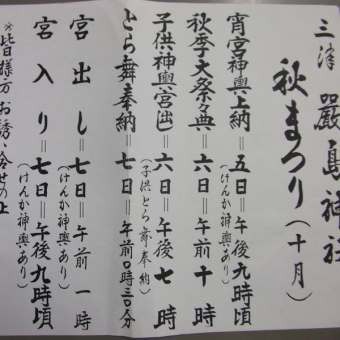 三津 嚴島神社
秋まつり(十月)
宵宮神輿上納=五日=午後九時頃
(けんか神輿あり)
秋季大祭典=六日=午前十時
子供神輿宮出=六日=午後七時
(子供とら舞奉納)
とら舞奉納=七日=午前0時三0分
宮出し=七日=午前一時
(けんか神輿あり)
宮入り=七日=午後九時頃
(けんか神輿あり)
※皆様方お誘い合せの上